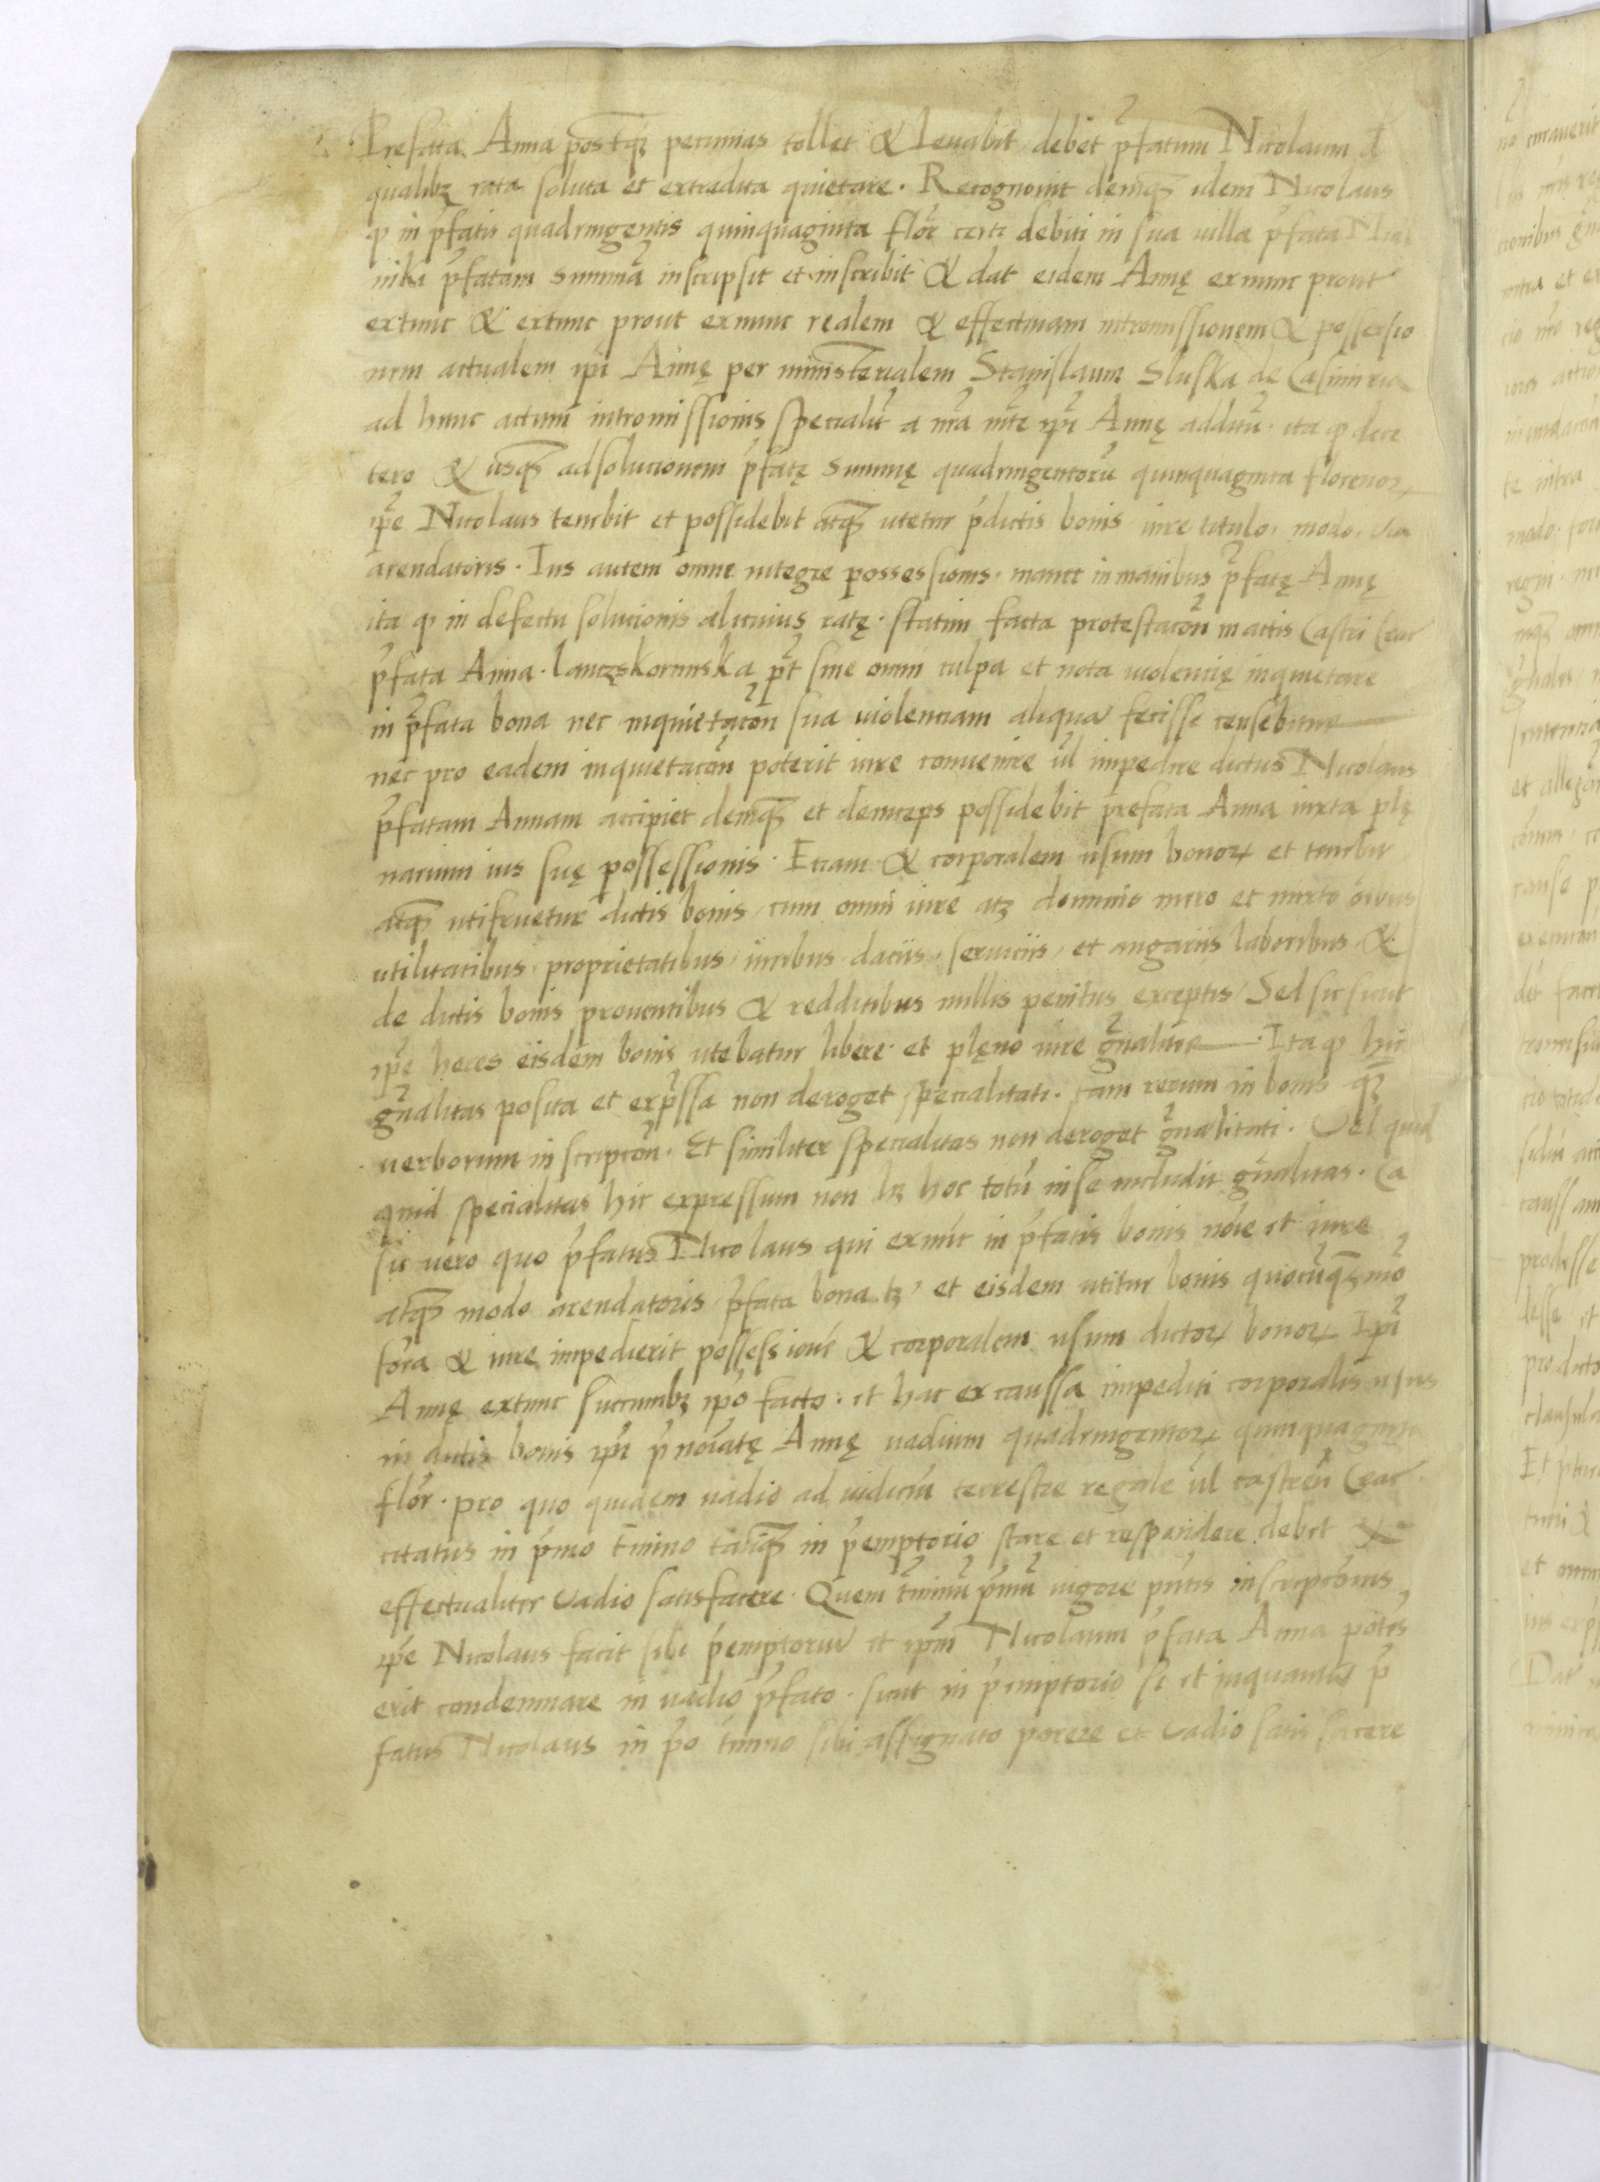 Prefata Anna postq̃ꝫ pecunias tollet & leuabit debet p̃fatum Nicolaum d
qualibꝫ rata soluta et extradita quietare. Recognouit demq̃ꝫ idem Nicolaus
ꝙ in p̃fatis quadringentis quinquaginta flor̃ certi debiti in sua uilla p̃fata
nika p̃fatam summã inscripsit et inscribit & dat eidem Annę exnunc prout
extunc & extunc prout exnunc realem & effectiuam intromissionem & possessio
nem actualem ip̃i Annę per ministerialem Stanislaum Sluska de Casimiria
ad hunc actum intromissionis specialit̃ a nr̃a mt̃e ip̃i Annę additũ. ita ꝙ dece
tero & usq̃ꝫ ad solucionem p̃fatę summę quadringentorũ quinquaginta florenoꝝ
ip̃e Nicolaus tenebit et possidebit atq̃ꝫ utetur p̃dictis bonis iure titulo. modo. via
arendatoris. Ius autem omne integre possessionis. manet in manibus p̃fatę Annę
ita ꝙ in defectu solucionis alicuius ratę. statim facta protestacõn in actis Castri Crac
p̃fata Anna. lanczskorunska p̃t sine omni culpa et nota uiolencię inquietare
in p̃fata bona nec inquietacõn sua uiolenciam aliquã fecisse censebitur
nec pro eadem inquietacõn poterit iure conuenire ul̃ impedire dictus Nicolaus
p̃fatam Annam accipiet demq̃ꝫ et deinceps possidebit prefata Anna iuxta plę
narium ius suę possessionis. Eciam & corporalem usum bonoꝝ et tenebit
atq̃ꝫ utifruetur dictis bonis cum omni iure atꝫ dominio mero et mixto õibus
utilitatibus. proprietatibus. iuribus. daciis. seruiciis. et angariis laboribus &
de dictis bonis prouentibus & redditibus nullis penitus exceptis. Sed sic sicut
ip̃e heres eisdem bonis utebatur libere. et plęno iure gñaliter. Ita ꝙ hic
gñalitas posita et exp̃ssa non deroget specialitati. tam rerum in bonis q̃ꝫ
uerborum in scripcõn. Et similiter specialitas non deroget gñalitati. Vel quid
quid specialitas hic expressum non hꝫ hoc totũ in se includit gñalitas. Ca
su vero quo p̃fatus Nicolaus qui exnũc in p̃fatis bonis nõie et iure
atq̃ꝫ modo arendatoris p̃fata bona tꝫ. et eisdem utitur bonis quocũq̃ꝫ mõ
fora & iure impedierit possessionẽ & corporalem usum dictoꝝ bonoꝝ Ip̃i
Annę extunc succumbꝫ ip̃o facto. et hac ex caussa impediti corporalis usus
in dictis bonis ip̃i p̃noĩatę Annę uadium quadringentoꝝ quinquaginta
flor̃. pro quo quidem uadio ad iudiciũ terrestre regale ul̃ castreñ Crac
citatus in p̃mo t̃mino tanq̃ꝫ in p̃emptorio stare et respondere debet &
effectualiter vadio satisfacere. Quem t̃minũ p̃mũ uigore pñtis inscripcõnis
ip̃e Nicolaus facit sibi p̃emptoriũ et ip̃m Nicolaum p̃fata Anna potes
erit condemnare in uadio p̃fato. sicut in p̃emptorio si et inquantũ p̃
fatus Nicolaus in p̃o t̃mino sibi assignato parere et vadio satis facere